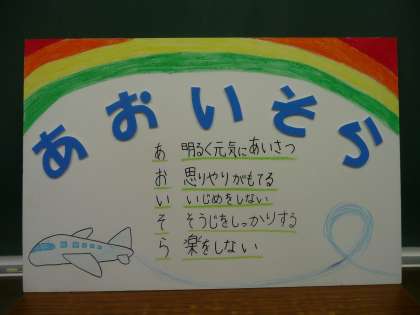 あおいそら
あ 明るく元気にあいさつ
お 思いやりがもてる
い いじめをしない
そ そうじをしっかりする
ら 楽をしない